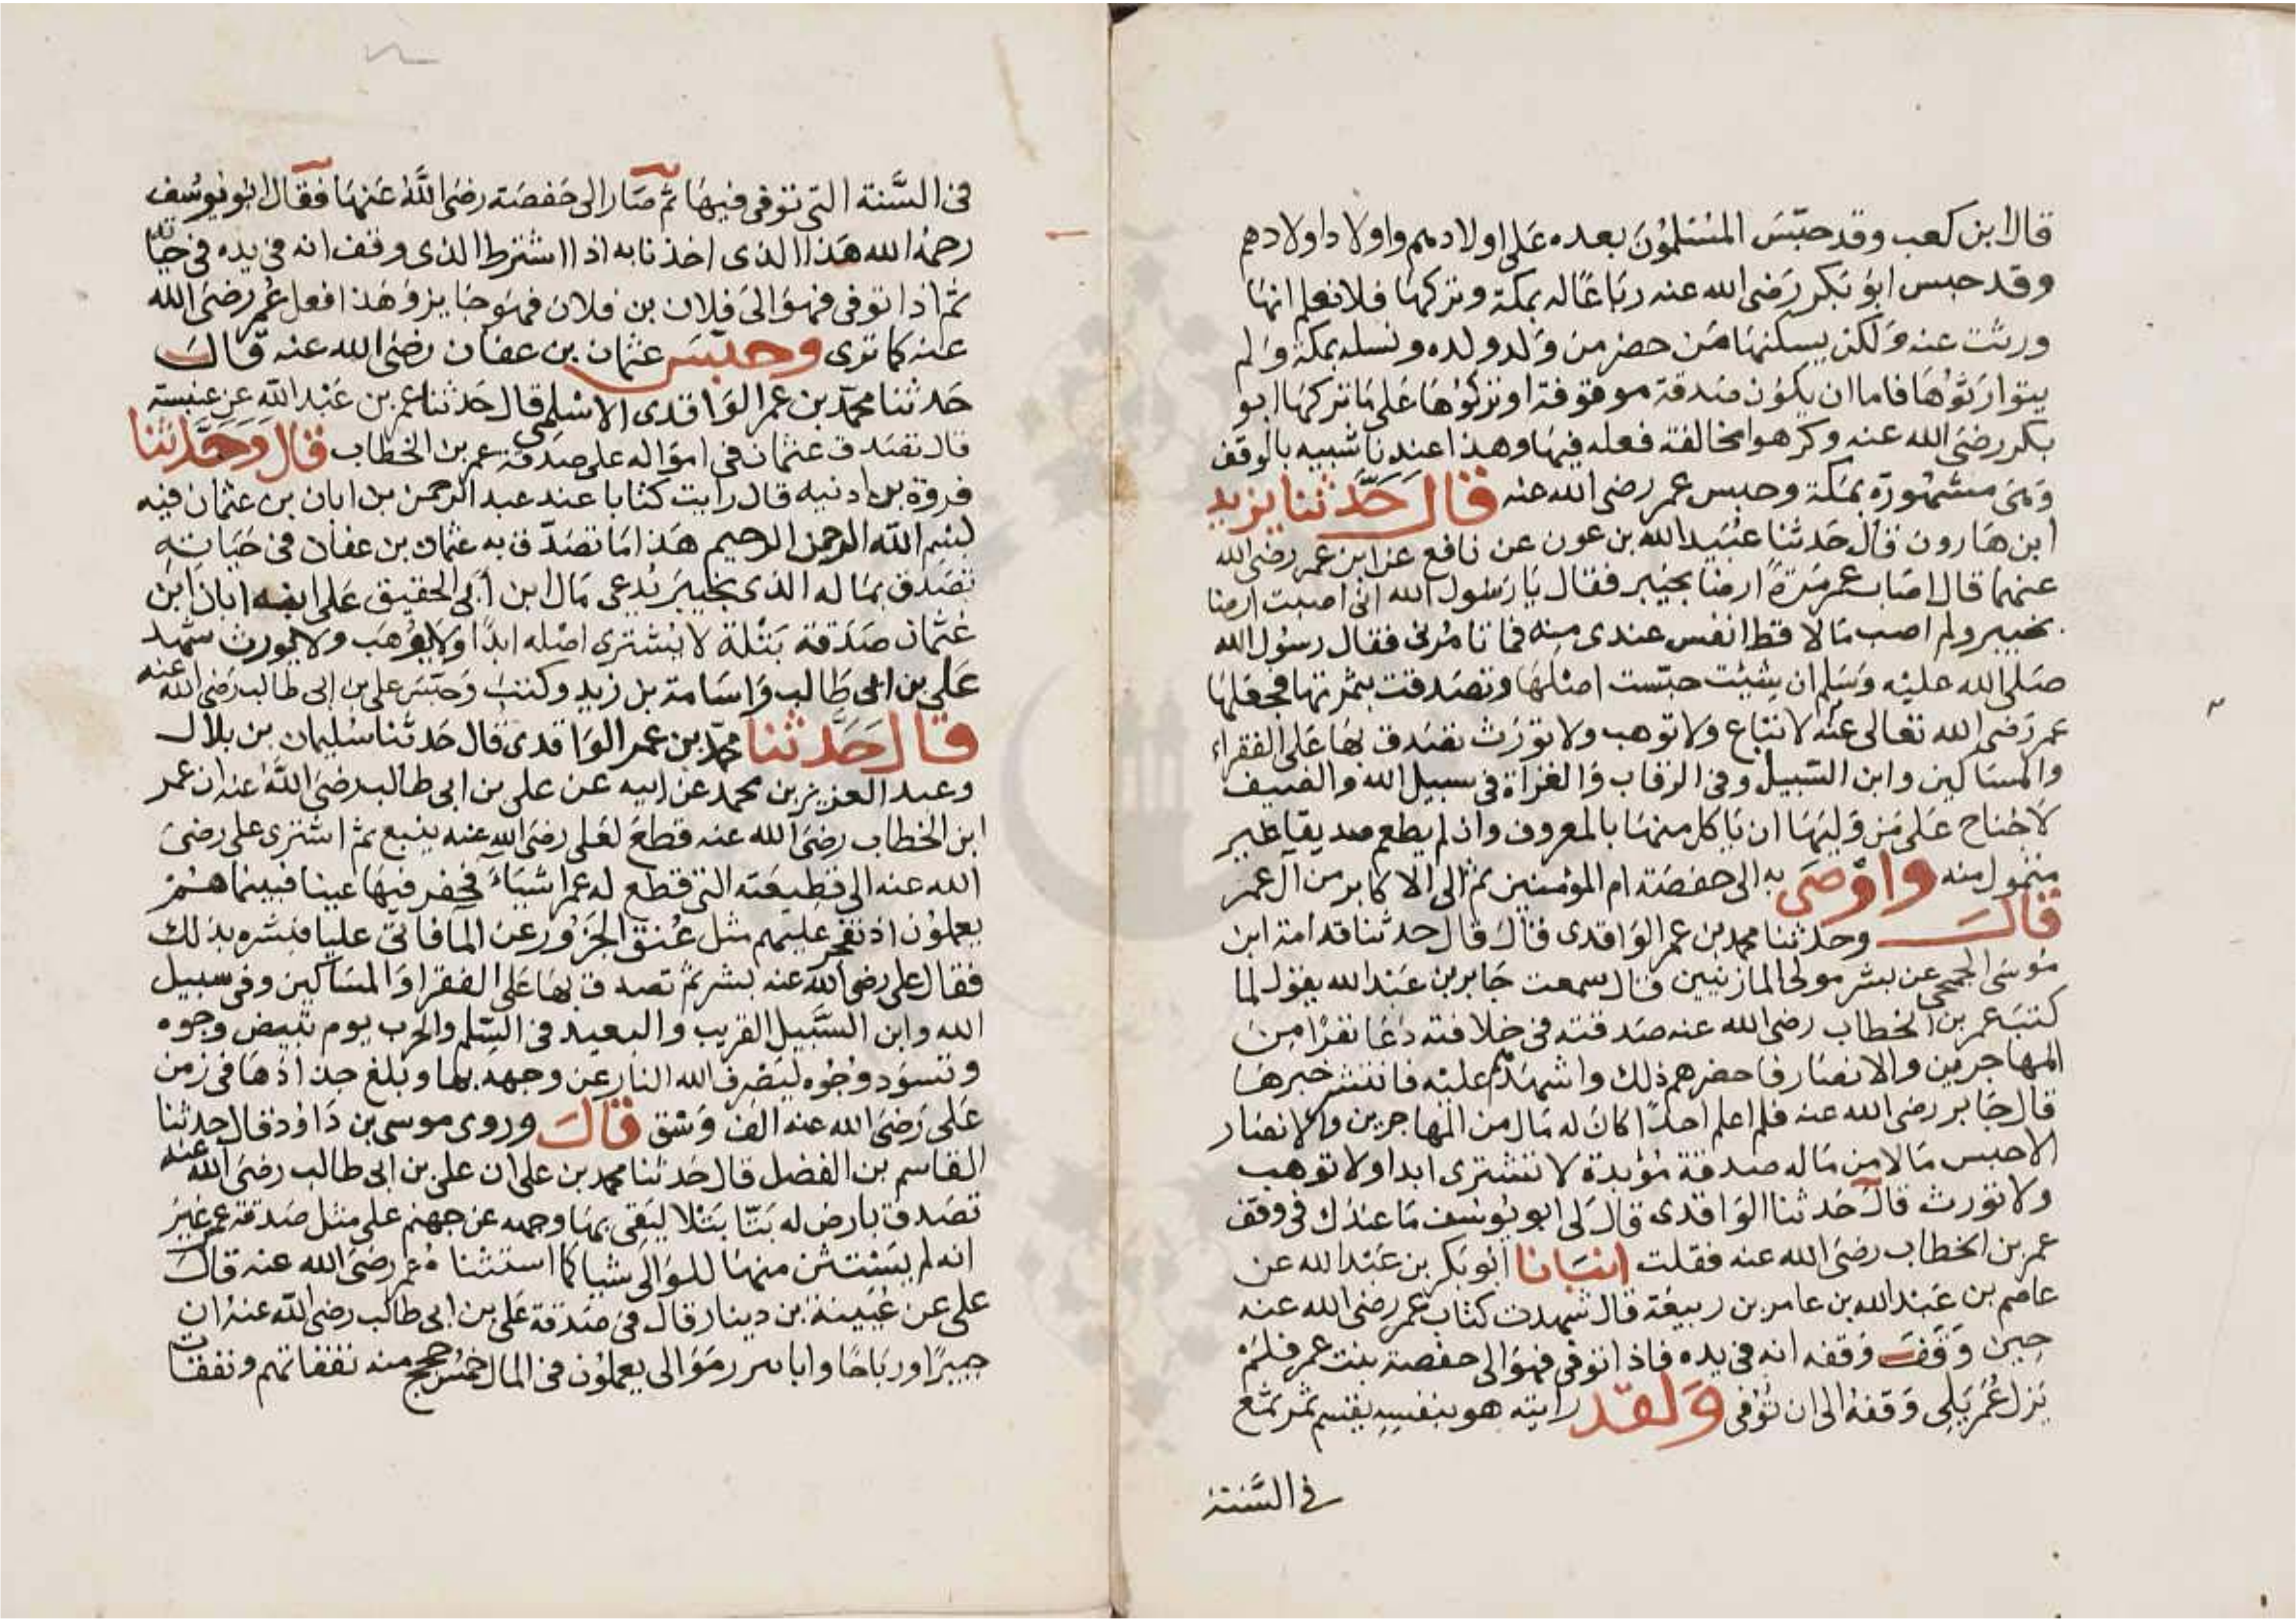 قال ابن كعب وقد حبّس المسلمون بعده على اولادهم واولاد اولادهم
وقد حبس ابو بكر رضى الله عنه رباعًا له بمكة وتركها فلا نعلم انها
ورثت عنه ولكن يسكنها من حضر من ولد ولده ونسله بمكة ولم
يتوارثوها فاما ان يكون صدقة موقوفة او تركوها على ما تركها ابو
بكر رضى الله عنه وكرهوا مخالفة فعله فيها وهذا عندنا شبيه بالوقف
وهى مشهورة بمكة وحبس عمر رضى الله عنه قال حدّثنا يزيد
ابن هارون قال حدثنا عبيد الله بن عون عن نافع عن ابن عمر رضى الله
عنهما قال اصاب عمر مرة ارضا بخيبر فقال يا رسول الله انى اصبت ارضا
بخيبر ولم اصب مالا قط انفس عندى منه فما تامرنى فقال رسول الله
صلى الله عليه وسلم ان شئت حبّست اصلها وتصدقت بثمرتها فجعلها
عمر رضى الله تعالى عنه لا تباع ولا توهب ولا تورث تصدق بها على الفقراء
والمساكين وابن السبيل وفى الرقاب والغزاة فى سبيل الله والضيف
لا جناح على من وليها ان ياكل منها بالمعروف وان لم يطعم صديقا غير
متمول منه واوصى به الى حفصة ام المؤمنين ثم الى الاكابر من آل عمر
قال وحدثنا محمد بن عمر الواقدى قال قال حدثنا قدامة ابن
موسى الجمحى عن بشر مولى المازنيين قال سمعت جابر بن عبد الله يقول لما
كتب عمر بن الخطاب رضى الله عنه صدقته فى خلافته دعا نفرًا من
المهاجرين والانصار فاحضرهم ذلك واشهدهم عليه فانتشر خبرها
قال جابر رضى الله عنه فلم اعلم احدًا كان له مال من المهاجرين والانصار
الا حبس مالا من ماله صدقة مؤبدة لا تشترى ابدا ولا توهب
ولا تورث قال حدثنا الواقدى قال لى ابو يوسف ما عندك فى وقف
عمر بن الخطاب رضى الله عنه فقلت انبانا ابو بكر بن عبد الله عن
عاصم بن عبيد الله بن عامر بن ربيعة قال شهدت كتاب عمر رضى الله عنه
حين وقف وقفه انه فى يده فاذا توفى فهو الى حفصة بنت عمر فلم
يزل عمر يلى وقفه الى ان توفى ولقد رايته هو بنفسه يقسم ثمر ثمغ
فى السّنة
فى السّنة التى توفى فيها ثم صار الى حفصة رضى الله عنها فقال ابو يوسف
رحمه الله هذا الذى اخذنا به اذا اشترط الذى وقف انه فى يده فى حياته
ثم اذا توفى فهو الى فلان بن فلان فهو جايز وهذا فعل عمر رضى الله
عنه كما ترى وحبّس عثمان بن عفان رضى الله عنه قال
حدثنا محمد بن عمر الواقدى الاسلمى قال حدثنا عمر بن عبد الله عن عنبسة
قال تصدق عثمان فى امواله على صدقة عمر بن الخطاب قال وحدّثنا
فروة بن اذنيه قال رايت كتابا عند عبد الرحمن بن ابان بن عثمان فيه
بسم الله الرحمن الرحيم هذا ما تصدّق به عثمان بن عفان فى حياته
تصدق بماله الذى بخيبر يدعى مال ابن ابى الحقيق على ابنه ابان ابن
عثمان صدقة بتلة لا يشترى اصله ابدًا ولا يوهب ولا يورث شهد
على بن ابى طالب واسامة بن زيد وكتب وحبّس على بن ابى طالب رضى الله عنه
قال حدّثنا محمد بن عمر الواقدى قال حدثنا سليمان بن بلال
وعبد العزيز بن محمد عن ابيه عن على بن ابى طالب رضى الله عنه ان عمر
ابن الخطاب رضى الله عنه قطع لعلى رضى الله عنه ينبع ثم اشترى على رضى
الله عنه الى قطيعته التى قطع له عمر اشياء فحفر فيها عينا فبينما هم
يعملون اذ تفجر عليهم مثل عنق الجزور عن الما فاتى عليا فبشره بذلك
فقال على رضى الله عنه بشر ثم تصدق بها على الفقرا والمساكين وفى سبيل
الله وابن السّبيل القريب والبعيد فى السّلم والحرب يوم تبيض وجوه
وتسود وجوه ليصرف الله النار عن وجهه بها وبلغ جذاذها فى زمن
على رضى الله عنه الف وسق قال وروى موسى بن داود قال حدثنا
القاسم بن الفضل قال حدثنا محمد بن على ان على بن ابى طالب رضى الله عنه
تصدق بارض له بتّا بتلا ليقى بها وجهه عن جهنم على مثل صدقة عمر غير
انه لم يستثن منها للوالى شيا كما استثنا عمر رضى الله عنه قال
على عن عيينة بن دينار قال فى صدقة على بن ابى طالب رضى الله عنه ان
جبيرًا ورباحا وابا موالى يعملون فى المال خمس حجج منه نفقاتهم ونفقات